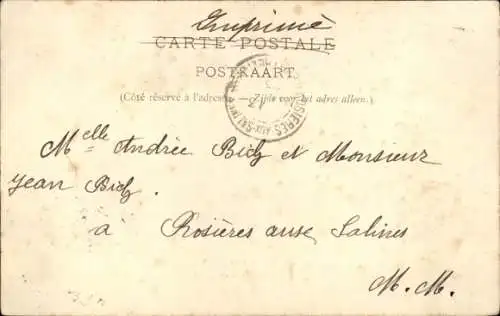 Imprimé
CARTE POSTALE
POSTKAART
(Côté réservé à l'adresse. — Zijde voor het adres alleen.)
ROSIÈRES AUX SALINES
Melle Andrée Bichz et Monsieur
Jean Bichz.
à Rosières aux Salines
M. M.